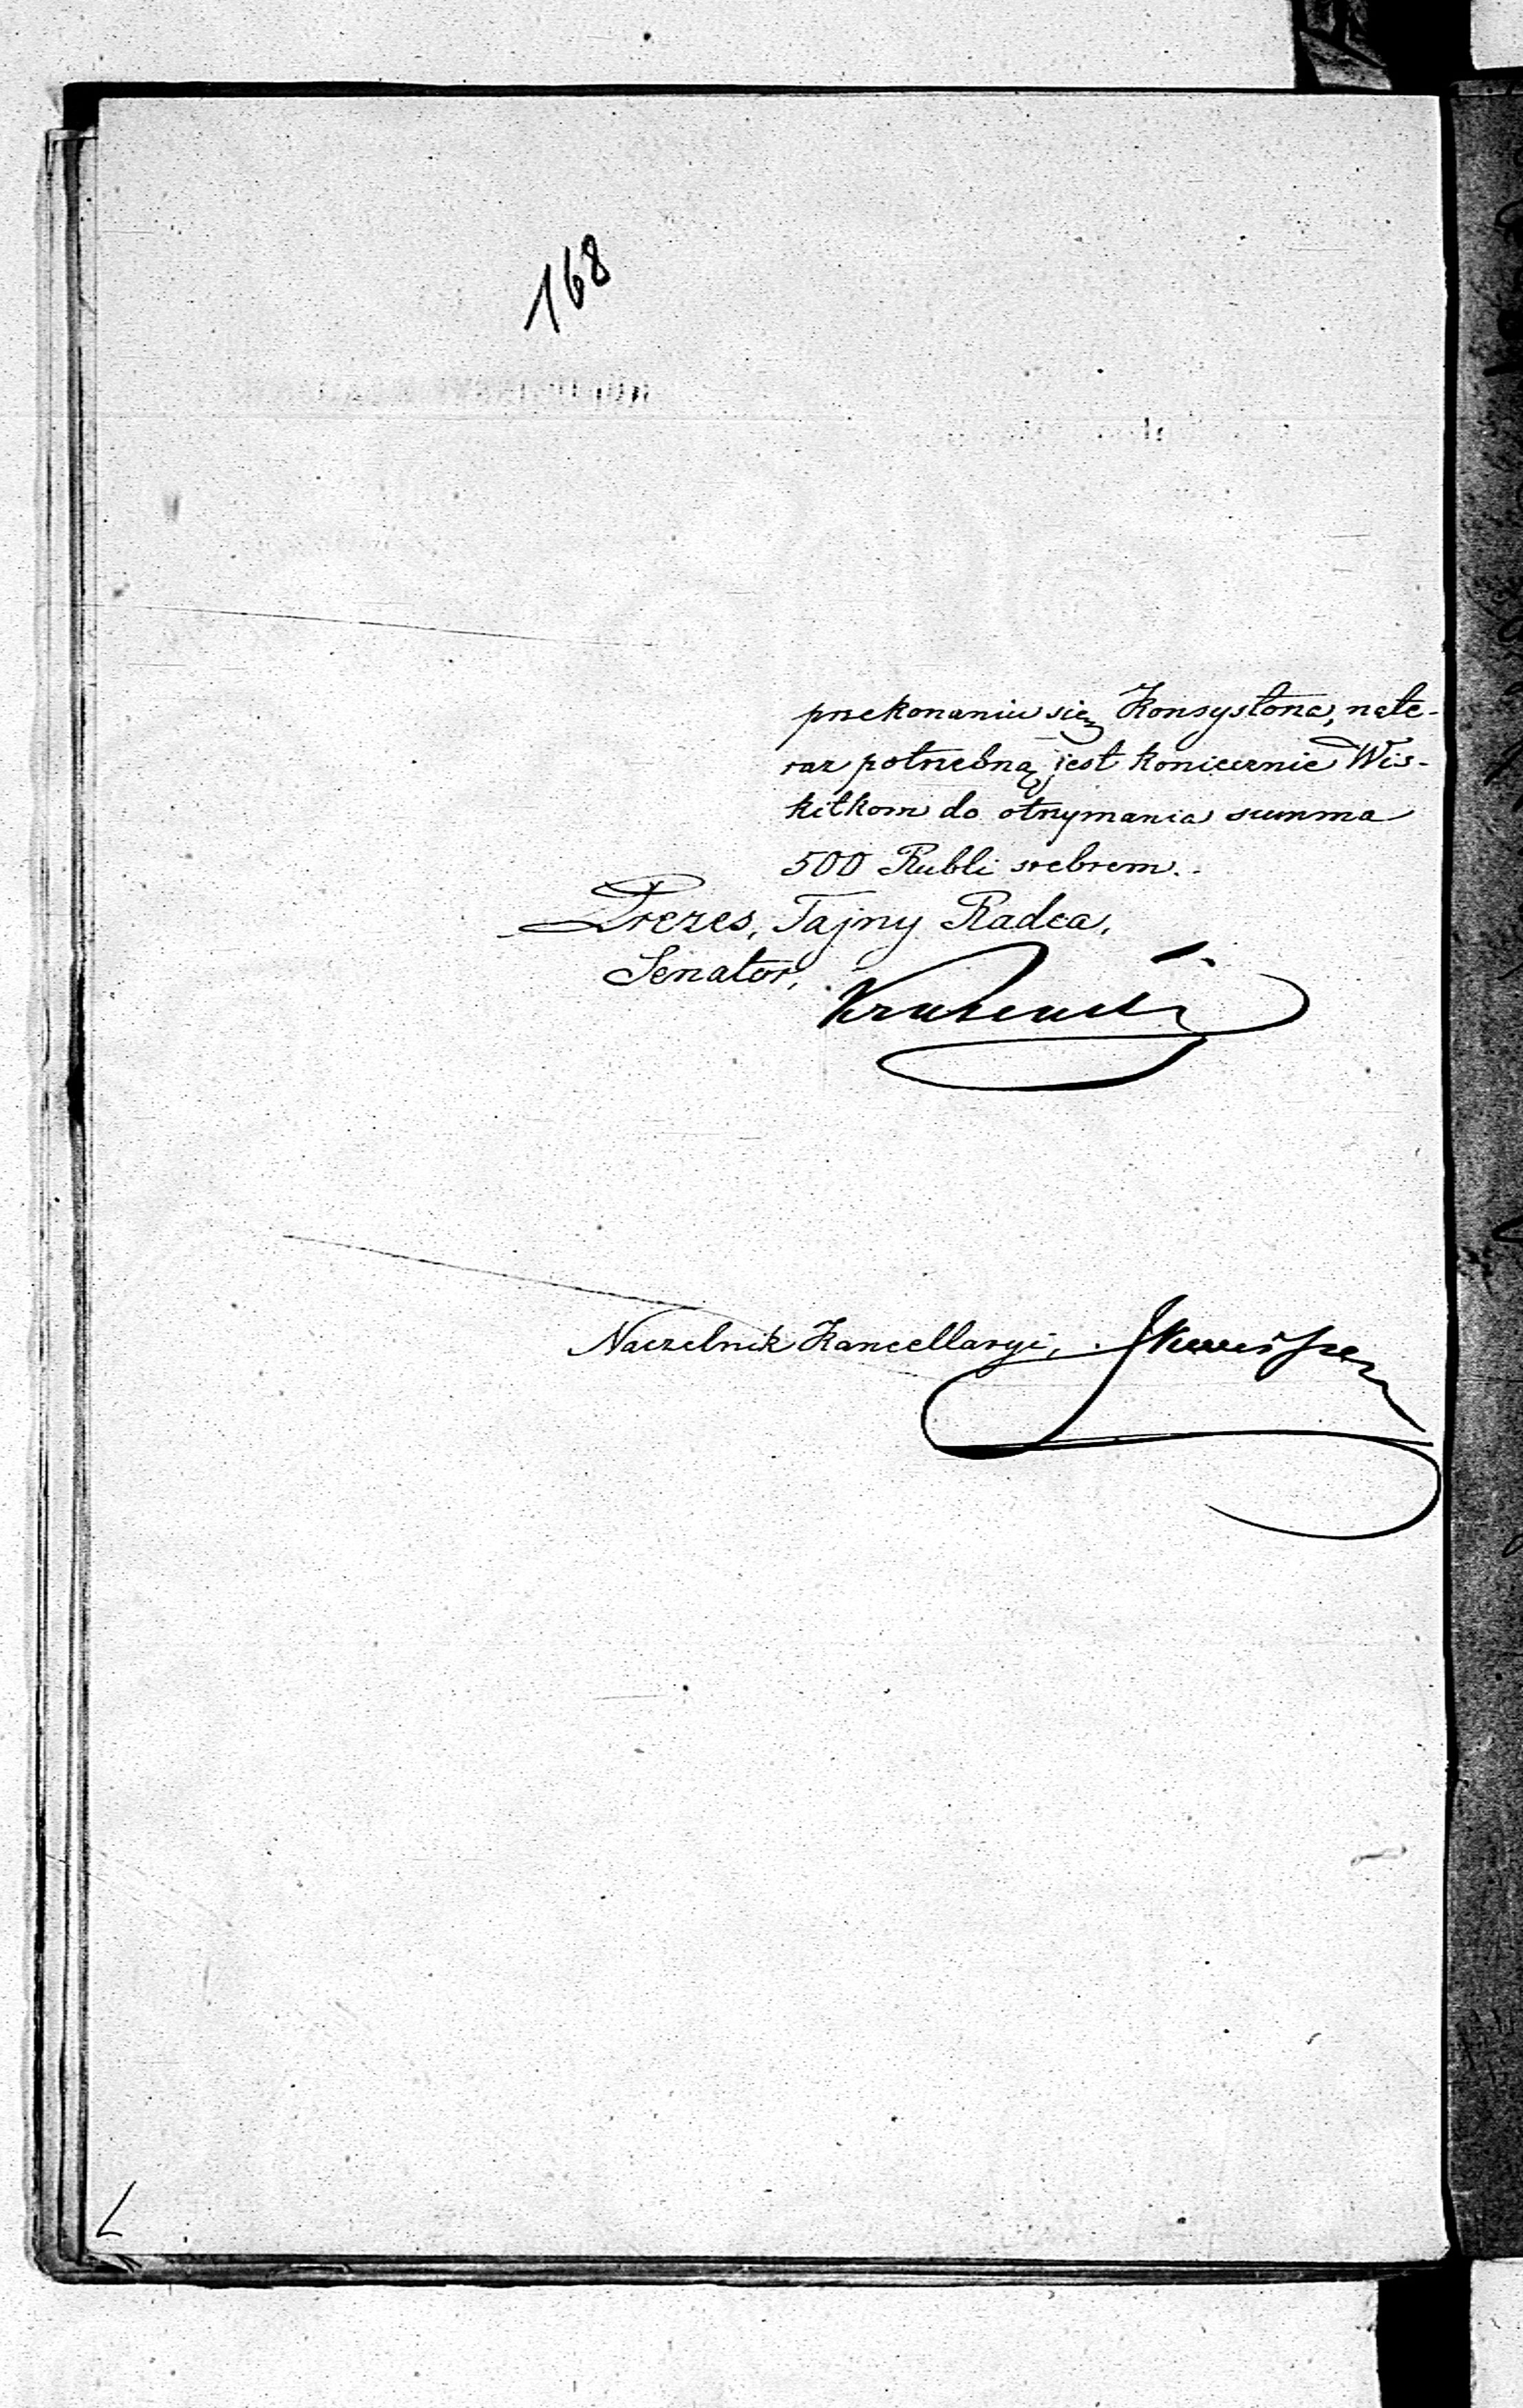 168
przekonaniu się Konsystorza, nate-
raz potrzebną jest koniecznie Wis-
kitkom do otrzymania summa
500 Rubli srebrem.
Prezes, Tajny Radca,
Senator,
Naczelnik Kancellaryi,